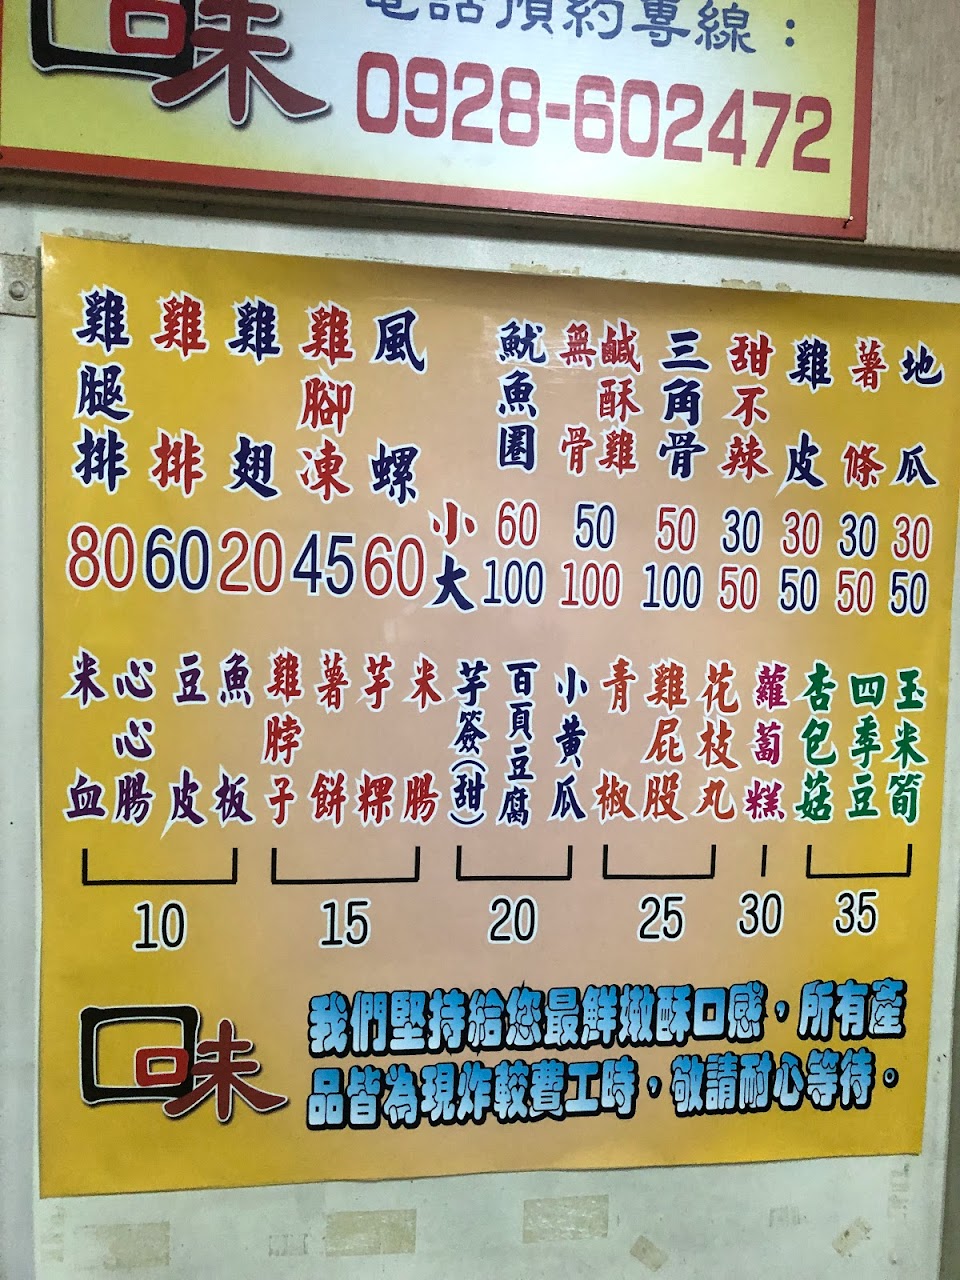 回味
電話預約專線：
0928-602472
雞腿排 80
雞排 60
雞翅 20
雞腳凍 45
風螺 60
小 大
魷魚圈 60 100
無骨鹹酥雞 50 100
三角骨 50 100
甜不辣 30 50
雞皮 30 50
薯條 30 50
地瓜 30 50
米血
心心腸
豆皮
魚板
10
雞脖子
薯餅
芋粿
米腸
15
芋簽(甜)
百頁豆腐
小黃瓜
20
青椒
雞屁股
花枝丸
25
蘿蔔糕
30
杏包菇
四季豆
玉米筍
35
回味
我們堅持給您最鮮嫩酥口感，所有產
品皆為現炸較費工時，敬請耐心等待。